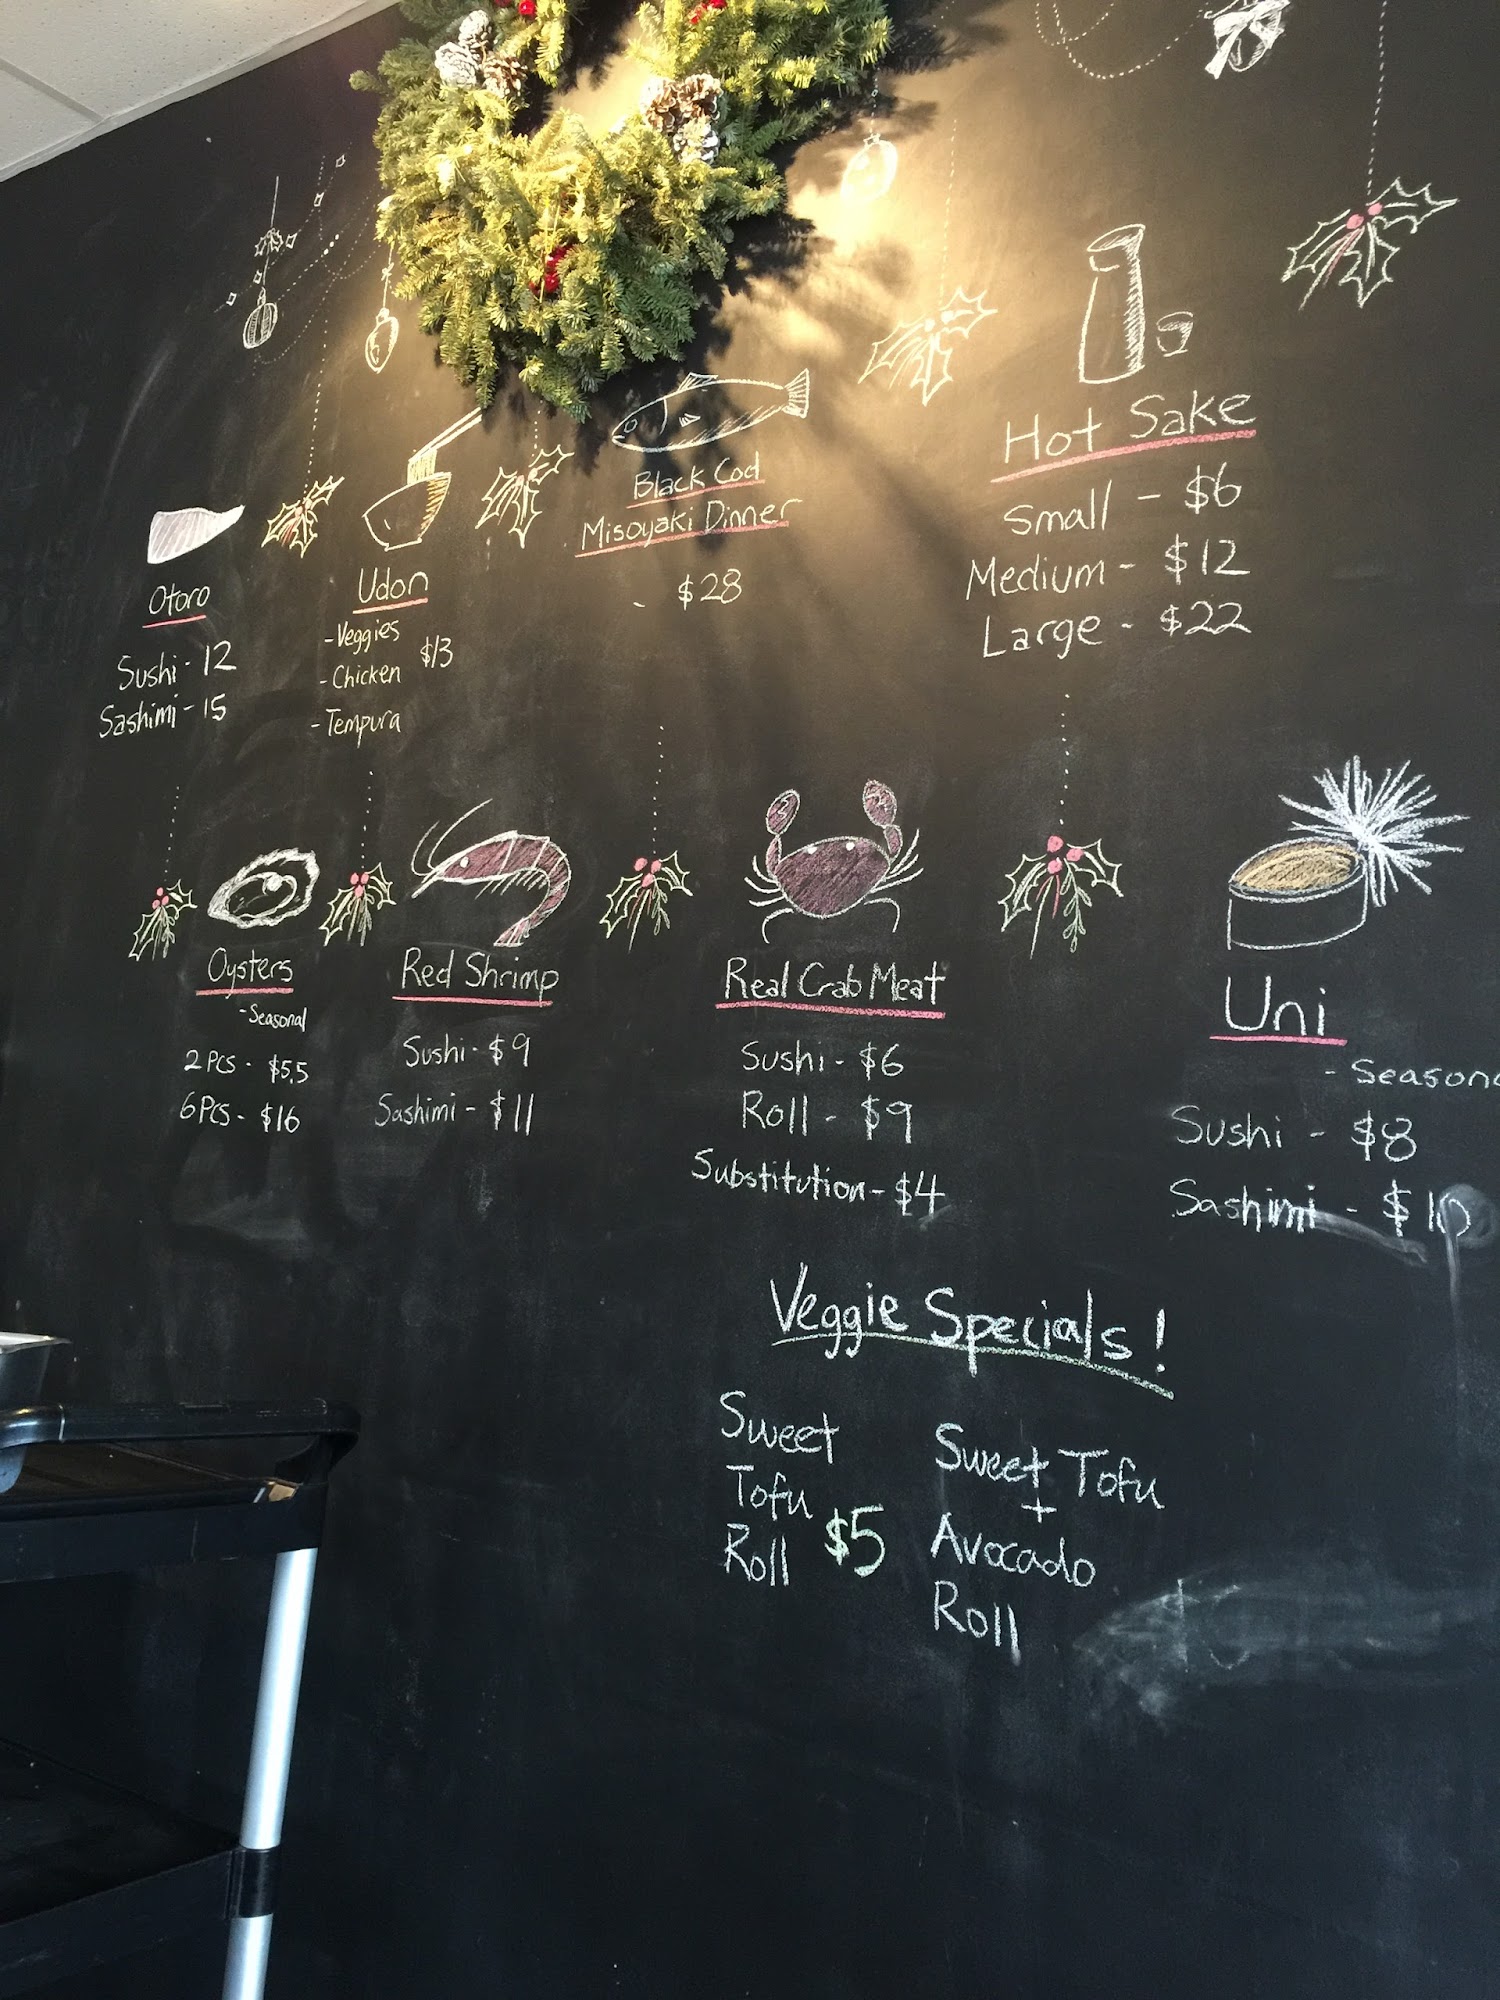 Otoro
Sushi - 12
Sashimi - 15
Udon
- Veggies
- Chicken $13
- Tempura
Black Cod
Misoyaki Dinner
- $28
Hot Sake
Small - $6
Medium - $12
Large - $22
Oysters
- Seasonal
2 PCS - $5.5
6 PCS - $16
Red Shrimp
Sushi - $9
Sashimi - $11
Real Crab Meat
Sushi - $6
Roll - $9
Substitution - $4
Uni
- Season
Sushi - $8
Sashimi - $10
Veggie Specials!
Sweet
Tofu
Roll $5
Sweet Tofu
+
Avocado
Roll